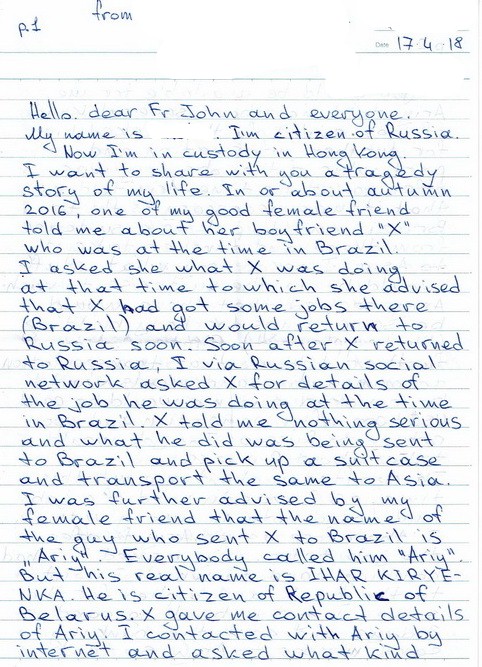 from
p.1
Date 17 4 18
Hello. dear Fr John and everyone.
My name is . I'm citizen of Russia.
Now I'm in custody in Hong Kong.
I want to share with you a tragedy
story of my life. In or about autumn
2016, one of my good female friend
told me about her boyfriend "X"
who was at the time in Brazil.
I asked she what X was doing
at that time to which she advised
that X had got some jobs there
(Brazil) and would return to
Russia soon. Soon after X returned
to Russia, I via Russian social
network asked X for details of
the job he was doing at the time
in Brazil. X told me nothing serious
and what he did was being sent
to Brazil and pick up a suitcase
and transport the same to Asia.
I was further advised by my
female friend that the name of
the guy who sent X to Brazil is
„Ariy". Everybody called him "Ariy".
But his real name is IHAR KIRYE-
NKA. He is citizen of Republic of
Belarus. X gave me contact details
of Ariy. I contacted with Ariy by
internet and asked what kind